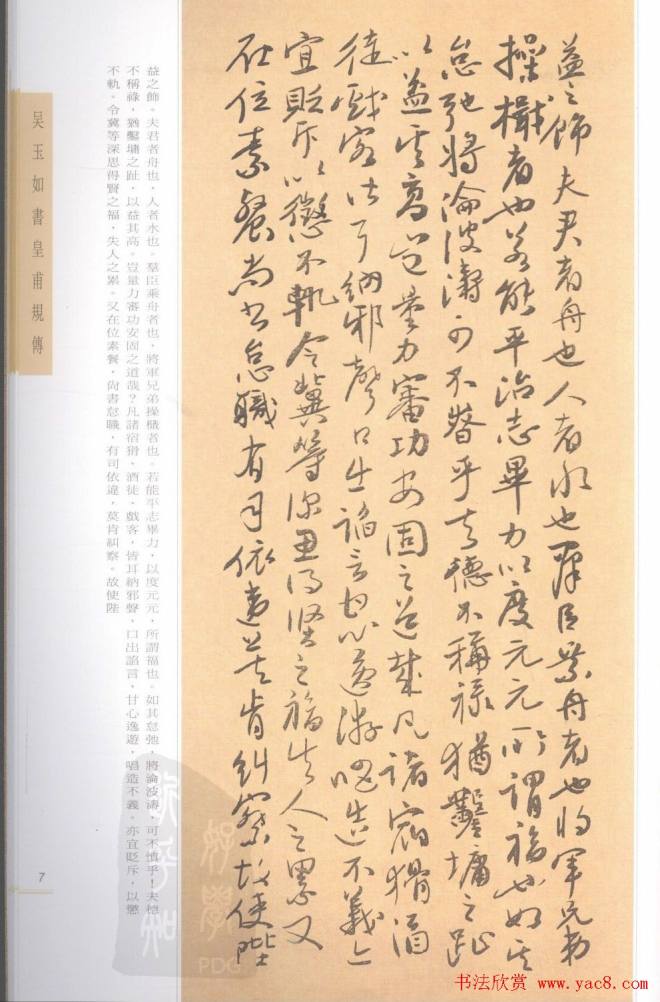 益之飾夫君者舟也人者水也羣臣乘舟者也將軍兄弟
操檝者也若能平治志畢力以度元元所謂福也如其
怠弛將淪波濤可不慎乎夫德不稱祿猶鑿墉之趾
以益其高豈量力審功安固之道哉凡諸宿猾酒
徒戲客皆耳納邪聲口出諂言甘心逸遊唱造不義亦
宜貶斥以懲不軌令冀等深思得賢之福失人之累又
在位素餐尚書怠職有司依違莫肯糾察故使陛
益之飾。夫君者舟也，人者水也。羣臣乘舟者也，將軍兄弟操檝者也。若能平志畢力，以度元元，所謂福也。如其怠弛，將淪波濤，可不慎乎！夫德
不稱祿，猶鑿墉之趾，以益其高。豈量力審功安固之道哉？凡諸宿猾、酒徒、戲客，皆耳納邪聲，口出諂言，甘心逸遊，唱造不義。亦宜貶斥，以懲
不軌。令冀等深思得賢之福，失人之累。又在位素餐，尚書怠職，有司依違，莫肯糾察。故使陛
吳玉如書皇甫規傳
7
PDG
书法欣赏 www.yac8.com